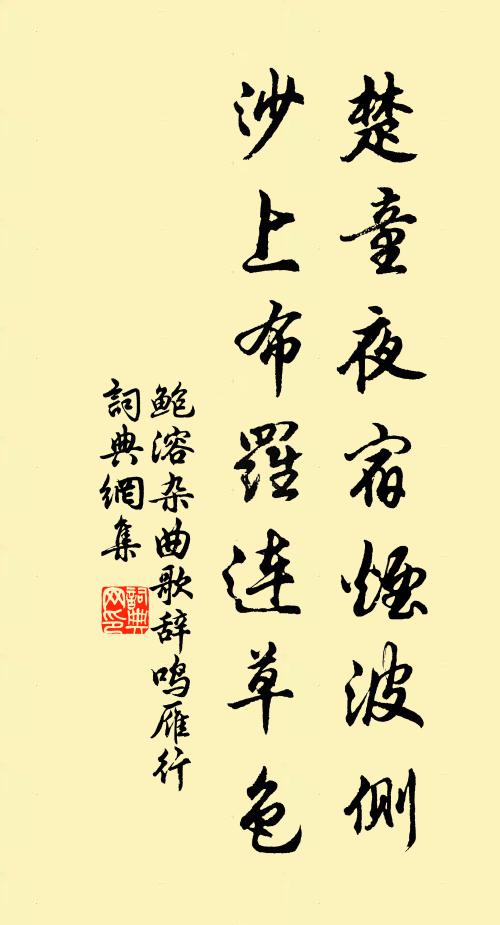 楚童夜宿煙波側
沙上布羅連草色
鲍溶杂曲歌辞鸣雁行
詞典網集
詞典
网印